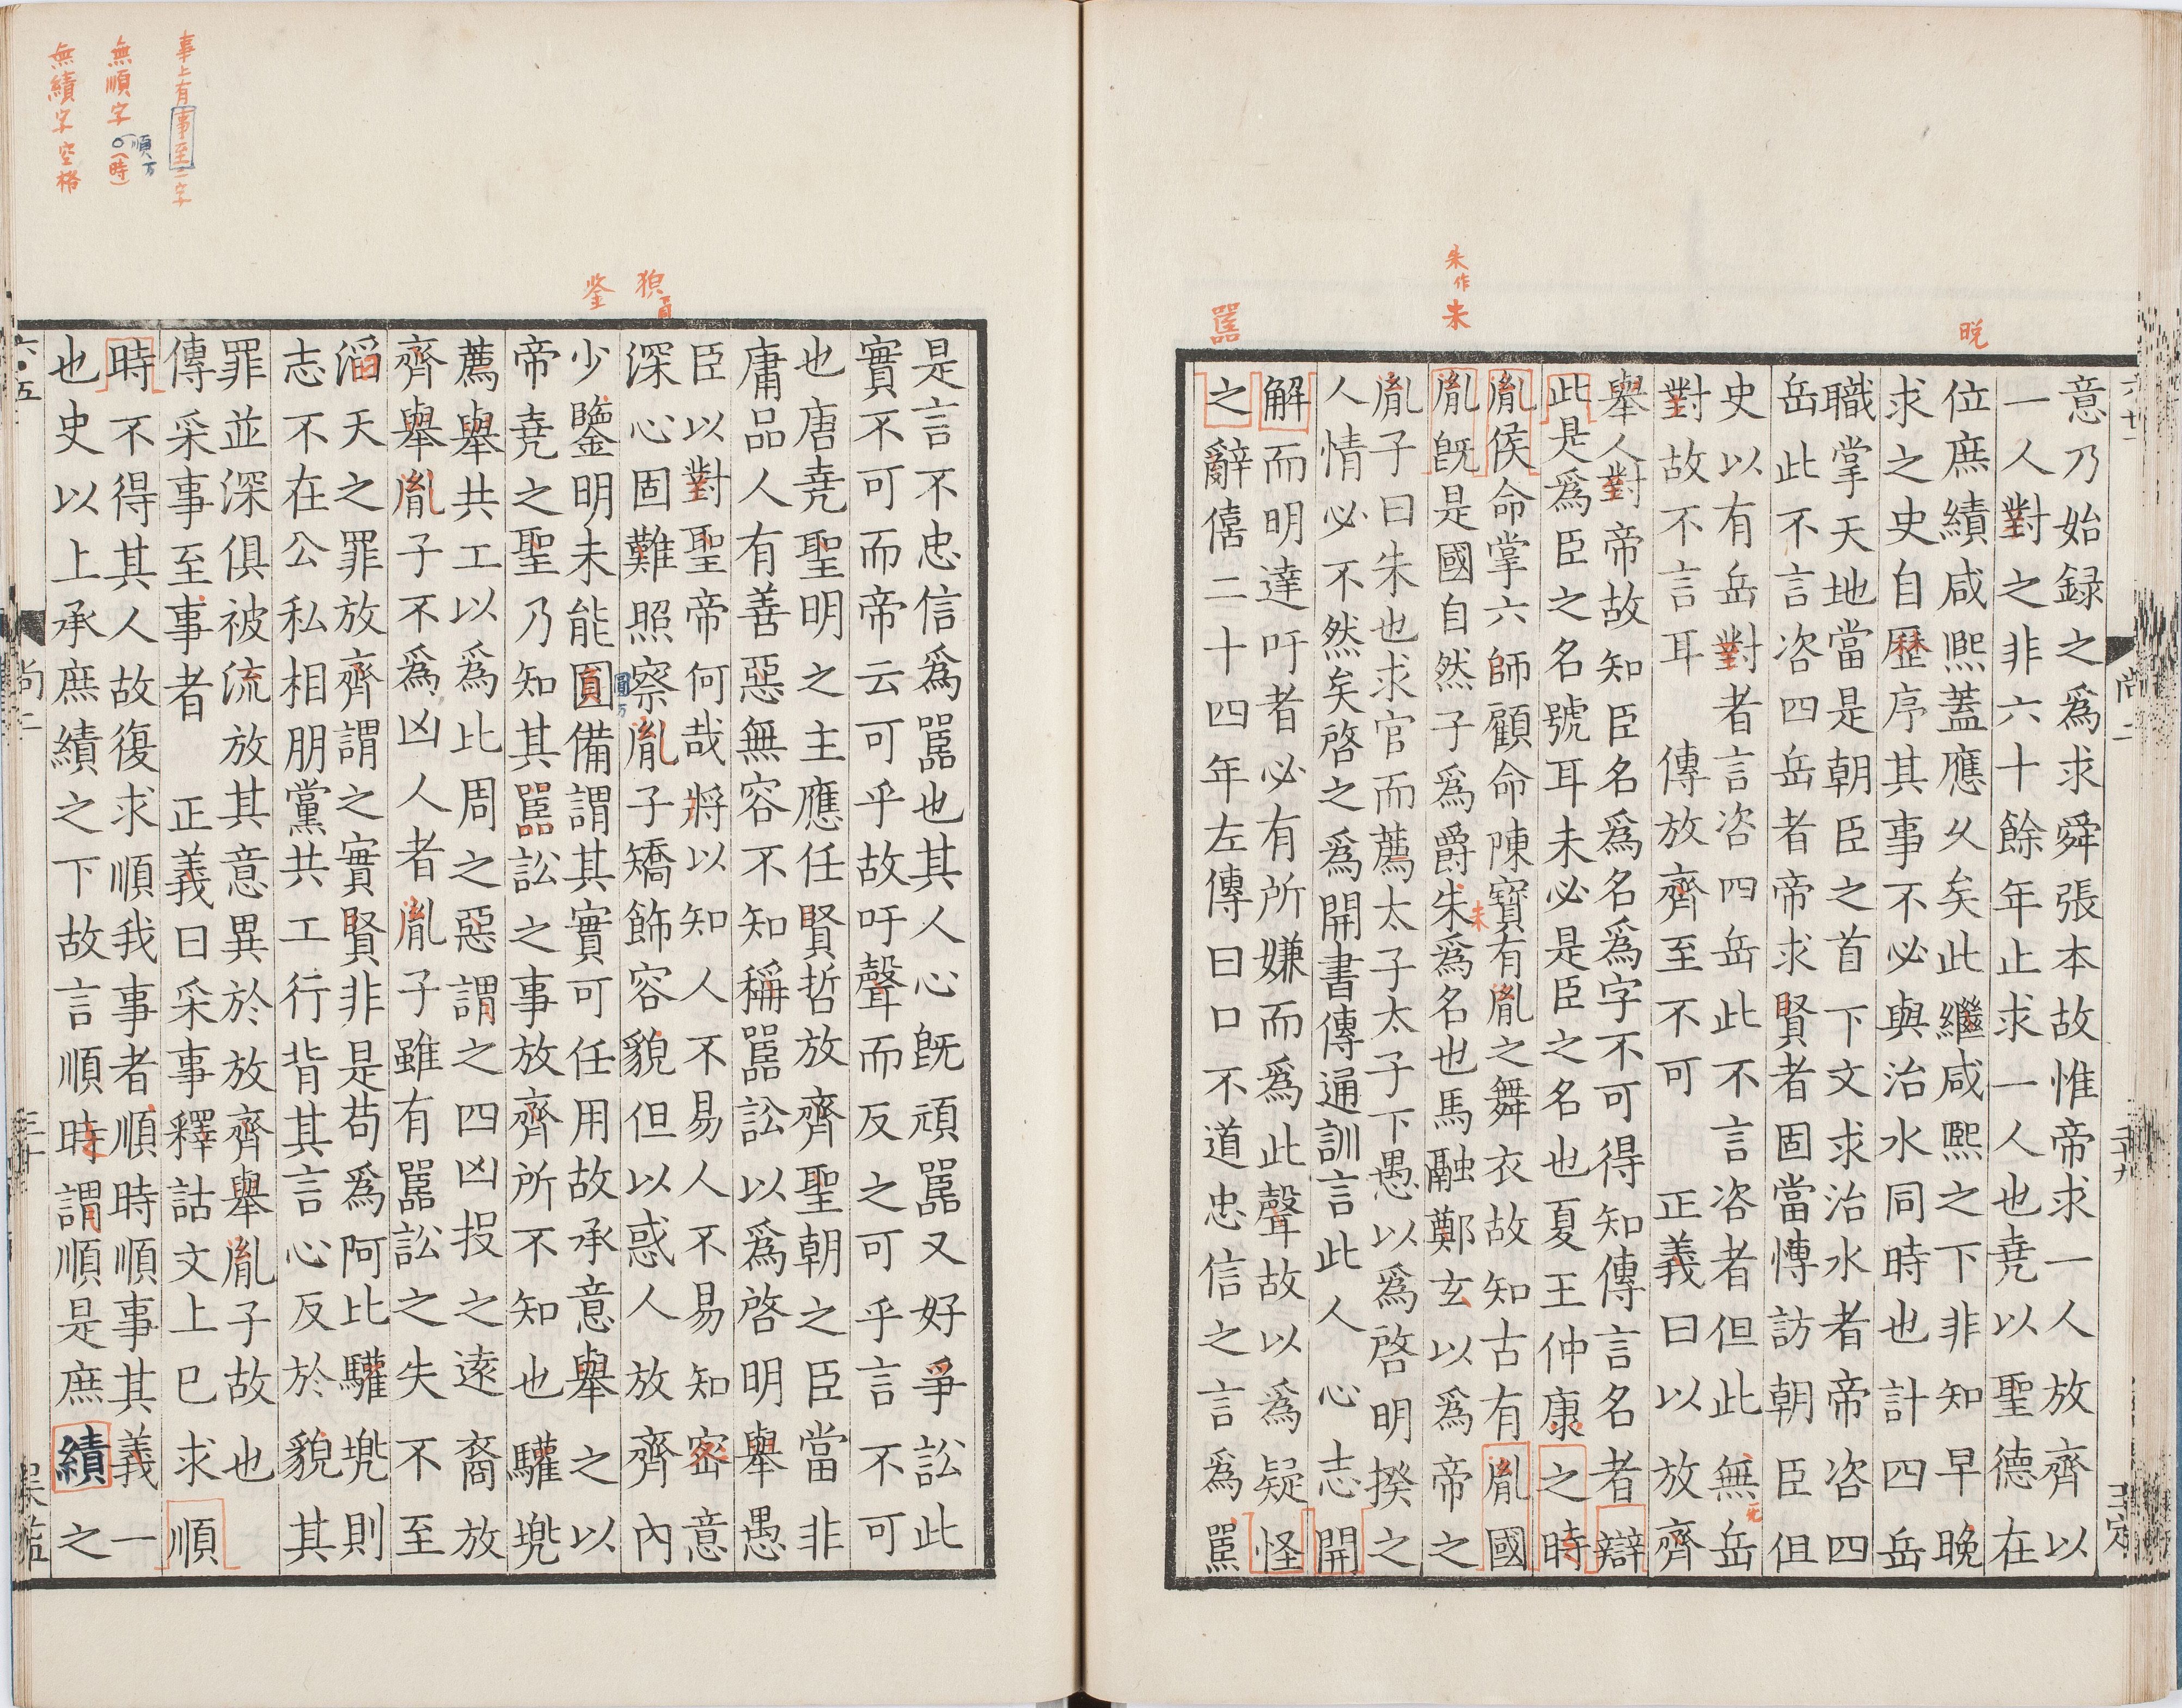 意乃始録之爲求舜張本故惟帝求一人放齊以
一人對之非六十餘年止求一人也堯以聖德在
位庶績咸熙蓋應久矣此繼咸熙之下非知早晚
求之史自歷序其事不必與治水同時也計四岳
職掌天地當是朝臣之首下文求治水者帝咨四
岳此不言咨四岳者帝求賢者固當博訪朝臣但
史以有岳對者言咨四岳此不言咨者但此無岳
對故不言耳 傳放齊至不可 正義曰以放齊
舉人對帝故知臣名爲名爲字不可得知傳言名者辯
此是爲臣之名號耳未必是臣之名也夏王仲康之時
胤侯命掌六師顧命陳寶有胤之舞衣故知古有胤國
胤旣是國自然子爲爵朱爲名也馬融鄭玄以爲帝之
胤子曰朱也求官而薦太子太子下愚以爲啓明揆之
人情必不然矣啓之爲開書傳通訓言此人心志開
解而明達吁者必有所嫌而爲此聲故以爲疑怪
之辭僖二十四年左傳曰口不道忠信之言爲嚚
晩
朱作
朱
嚚
朱
无
六廿一
尚二
二十九
王定
是言不忠信爲嚚也其人心旣頑嚚又好爭訟此
實不可而帝云可乎故吁聲而反之可乎言不可
也唐堯聖明之主應任賢哲放齊聖朝之臣當非
庸品人有善惡無容不知稱嚚訟以爲啓明舉愚
臣以對聖帝何哉將以知人不易人不易知密意
深心固難照察胤子矯飾容貌但以惑人放齊內
少鑒明未能圓備謂其實可任用故承意舉之以
帝堯之聖乃知其嚚訟之事放齊所不知也驩兜
薦舉共工以爲比周之惡謂之四凶投之遠裔放
齊舉胤子不爲凶人者胤子雖有嚚訟之失不至
滔天之罪放齊謂之實賢非是苟爲阿比驩兜則
志不在公私相朋黨共工行背其言心反於貌其
罪並深俱被流放其意異於放齊舉胤子故也
傳采事至事者 正義曰采事釋詁文上已求順
時不得其人故復求順我事者順時順事其義一
也史以上承庶績之下故言順時謂順是庶績之
圓方
鉴
事上有事至二字
無順字
順方
(時)
無績字空格
六•五
尚二
三十